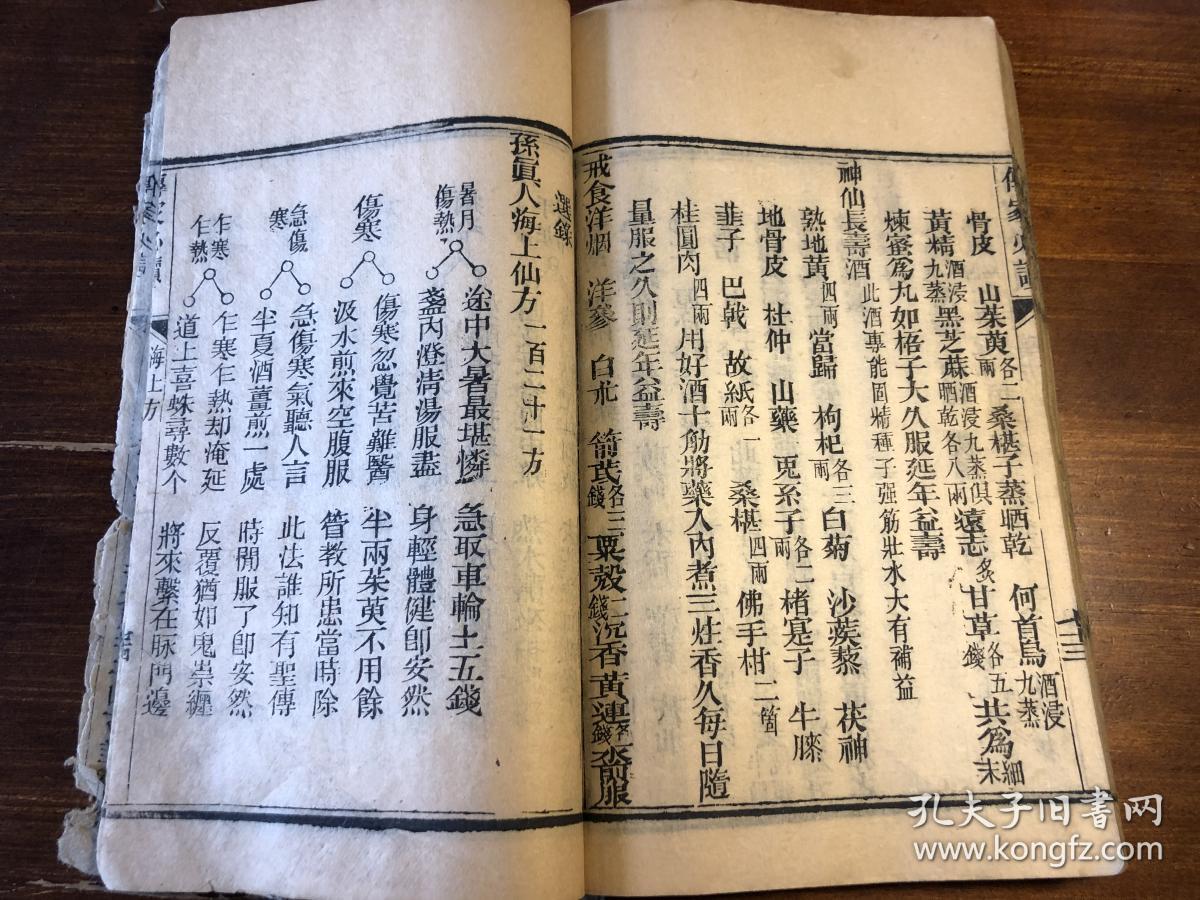 骨皮 山茱萸各二兩 桑椹子蒸晒乾 何首烏酒浸九蒸
黃精酒浸九蒸黑芝蔴酒浸九蒸俱晒乾各八兩遠志炙甘草各五錢共爲細末
煉蜜爲丸如梧子大久服延年益壽
神仙長壽酒此酒專能固精種子强筋壯水大有補益
熟地黃四兩當歸 枸杞各三兩白菊 沙蒺藜 茯神
地骨皮 杜仲 山藥 兎糸子各二兩楮寔子 牛膝
韭子 巴戟 故紙各一兩 桑椹四兩佛手柑二箇
桂圓肉四兩用好酒十觔將藥入內煮三炷香久每日隨
量服之久則延年益壽
戒食洋烟 洋參 白朮 箭芪各三錢粟殼二錢沉香黃連各錢煎服
十三
選錄
孫眞人海上仙方一百二十一方
暑月傷熱 途中大暑最堪憐 急取車輪土五錢
盞內澄清湯服盡 身輕體健卽安然
傷寒 傷寒忽覺苦難醫 半兩茱萸不用餘
汲水煎來空腹服 管教所患當時除
急傷寒 急傷寒氣聽人言 此法誰知有聖傳
半夏酒薑煎一處 時閒服了卽安然
乍寒乍熱 乍寒乍熱却淹延 反覆猶如鬼祟纏
道上喜蛛尋數个 將來繫在脉門邊
海上方
孔夫子旧书网
www.kongfz.com